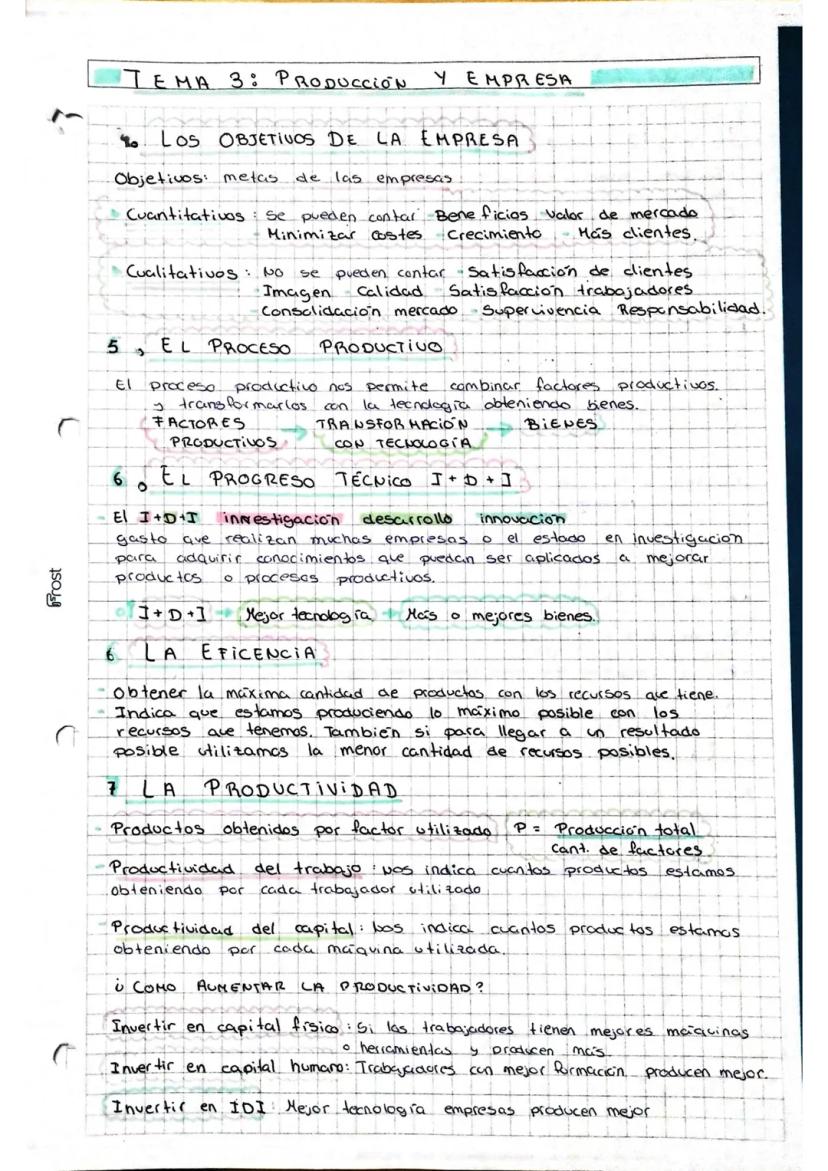 TEMA 3: PRODUCCIÓN Y EMPRESA
LOS OBJETIVOS DE LA EMPRESA
Objetivos: metas de las empresas
Cuantitativos: Se pueden contar - Beneficios Valor de mercado
- Minimizar costes - Crecimiento - Más clientes.
Cualitativos: No se pueden contar - Satisfacción de clientes
- Imagen - Calidad - Satisfacción trabajadores
- Consolidación mercado - Supervivencia Responsabilidad.
5. EL PROCESO PRODUCTIVO
El proceso productivo nos permite combinar factores productivos.
y transformarlos con la tecnología obteniendo bienes.
FACTORES → TRANSFORMACIÓN → BIENES
PRODUCTIVOS CON TECNOLOGÍA
6. EL PROGRESO TÉCNICO I+D+I
- El I+D+I investigación desarrollo innovación
gasto que realizan muchas empresas o el estado en investigación
para adquirir conocimientos que puedan ser aplicados a mejorar
productos o procesos productivos.
I+D+I → Mejor tecnología → Más o mejores bienes.
6 LA EFICENCIA
- Obtener la máxima cantidad de productos con los recursos que tiene.
- Indica que estamos produciendo lo máximo posible con los
recursos que tenemos. También si para llegar a un resultado
posible utilizamos la menor cantidad de recursos posibles.
7 LA PRODUCTIVIDAD
- Productos obtenidos por factor utilizado P = Producción total
Cant. de factores
- Productividad del trabajo: Nos indica cuantos productos estamos
obteniendo por cada trabajador utilizado
Productividad del capital: Nos indica cuantos productos estamos
obteniendo por cada máquina utilizada.
¿COMO AUMENTAR LA PRODUCTIVIDAD?
Invertir en capital físico: Si los trabajadores tienen mejores máquinas
o herramientas y producen más
Invertir en capital humano: Trabajadores con mejor formación producen mejor.
Invertir en IDI: Mejor tecnología empresas producen mejor